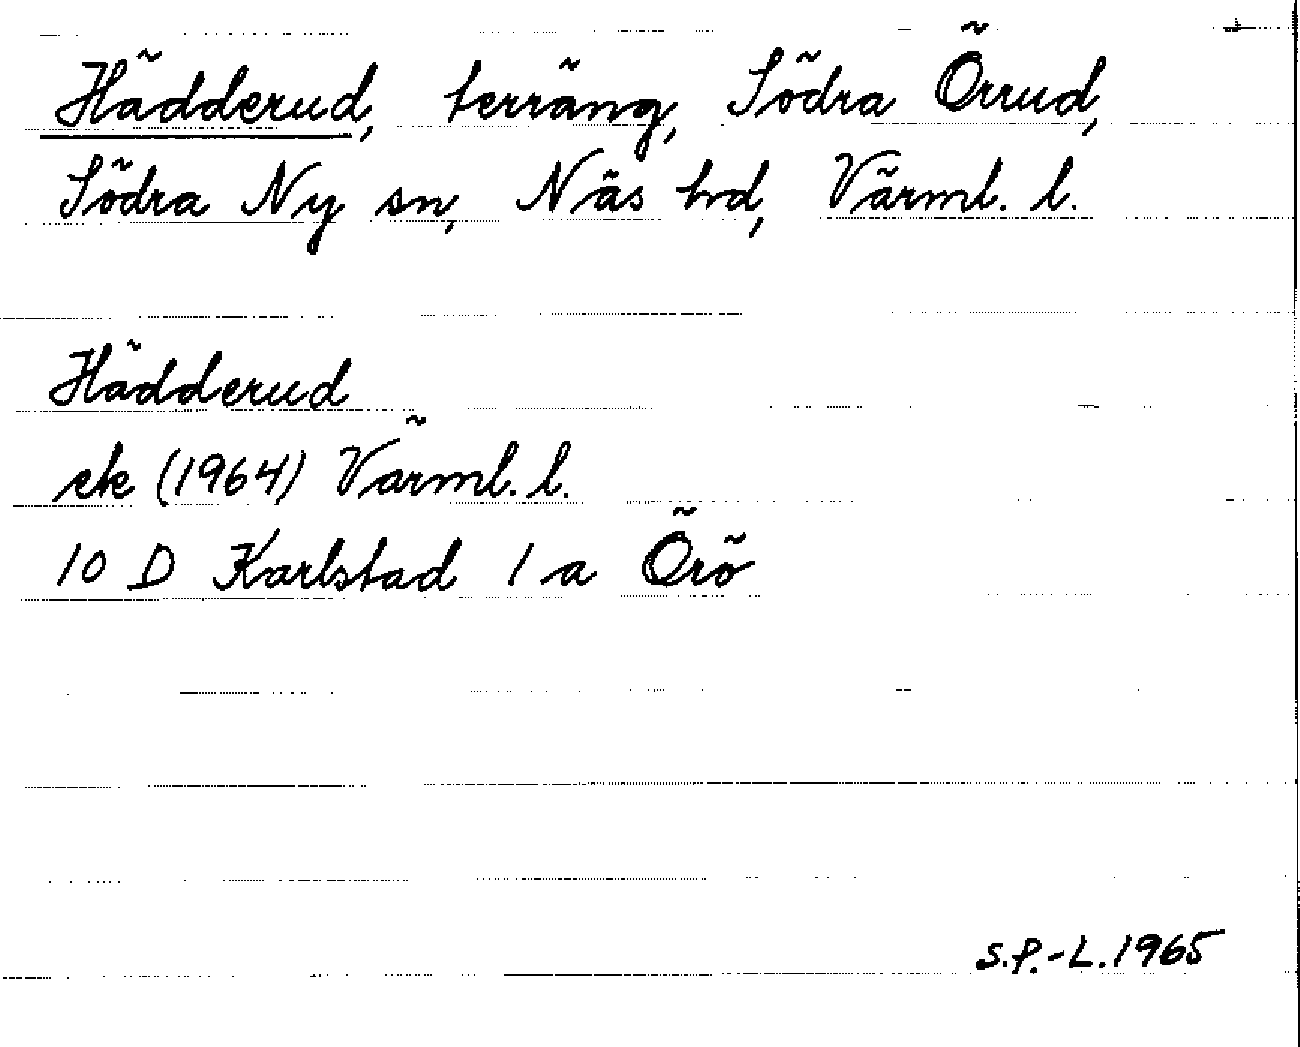 Hädderud, terräng, Södra Örrud,
Södra Ny sn, Näs hd, Värml. l.
Hädderud
ek (1964) Värml. l.
10 D Karlstad 1 a Örö
S.P.-L. 1965